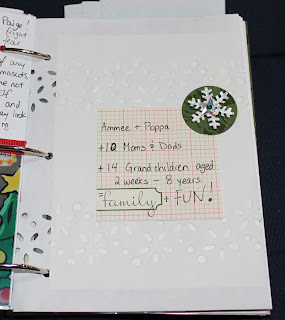 Paige!
fright
fear
of any
mascots,
me not
Elf
and
ay look
ng
Ammee + Poppa
+10 Moms & Dads
+14 Grandchildren aged
2 weeks - 8 years
= family + FUN!